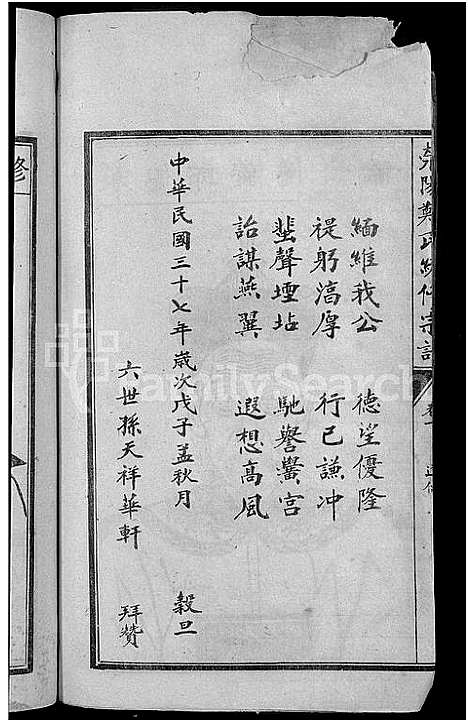 滎陽鄭氏續修宗譜
卷一
緬維我公 德望優隆
禔躬滈厚 行已謙冲
蜚聲堙坫 馳譽黌宫
詒謀燕翼 遐想高風
中華民國三十七年歲次戊子孟秋月 穀旦
六世孫天祥華軒 拜贊
修
FamilySearch